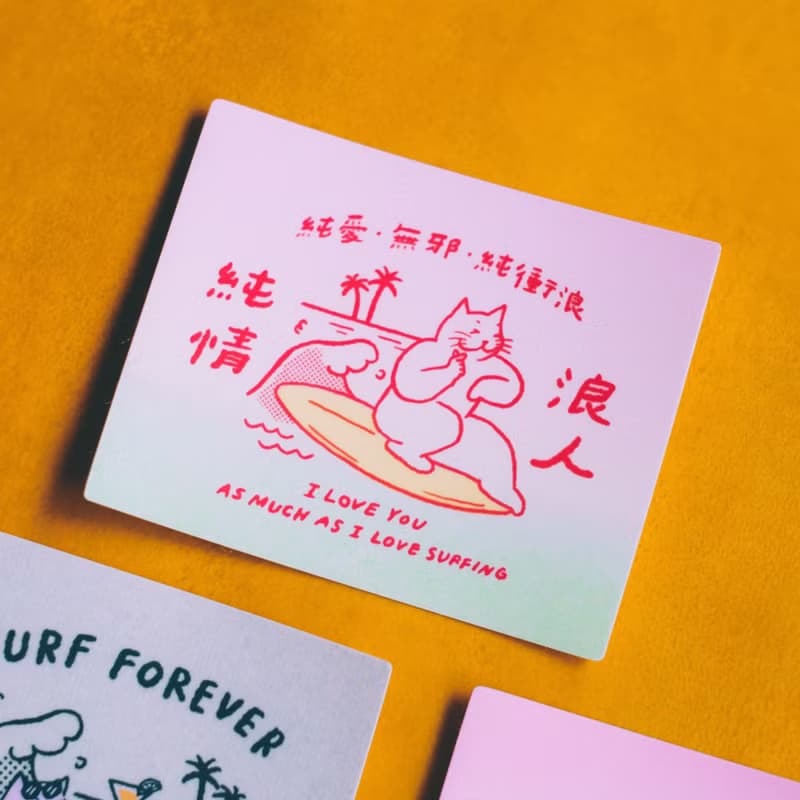 純愛・無邪・純衝浪
純情
浪人
I LOVE YOU
AS MUCH AS I LOVE SURFING
URF FOREVER